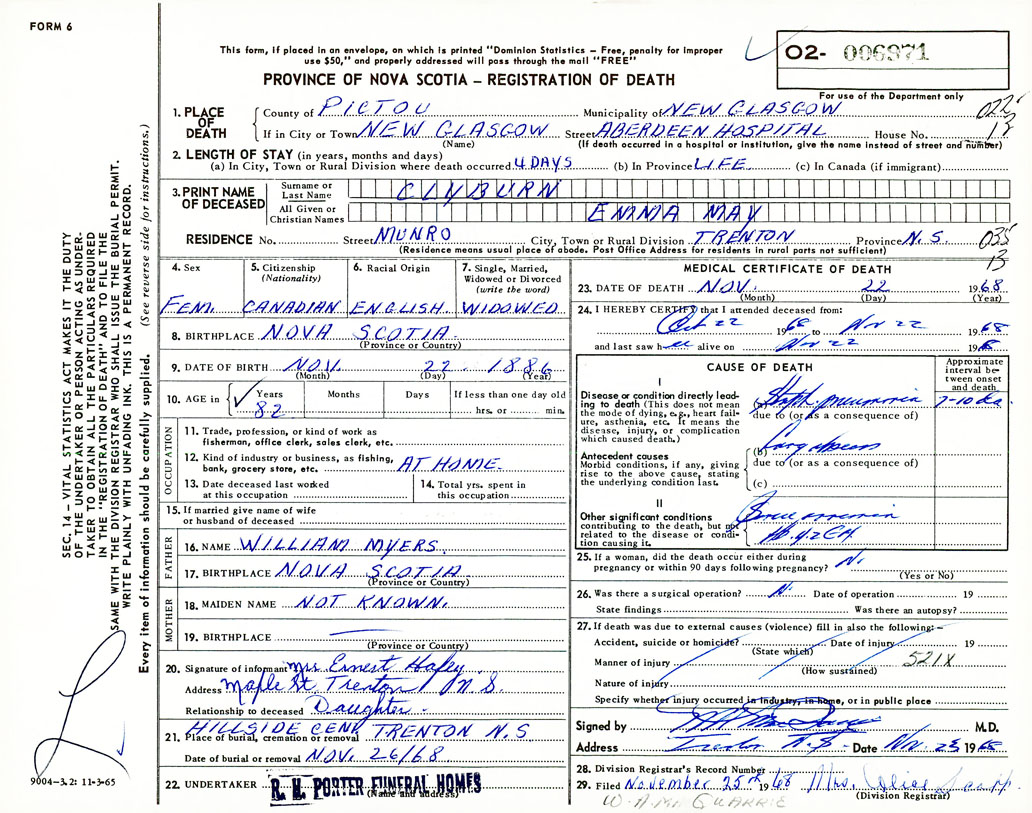 FORM 6
This form, if placed in an envelope, on which is printed "Dominion Statistics — Free, penalty for improper
use $50," and properly addressed will pass through the mail "FREE"
PROVINCE OF NOVA SCOTIA – REGISTRATION OF DEATH
O2- 006971
For use of the Department only
SEC. 14 – VITAL STATISTICS ACT MAKES IT THE DUTY
OF THE UNDERTAKER OR PERSON ACTING AS UNDER-
TAKER TO OBTAIN ALL THE PARTICULARS REQUIRED
IN THE "REGISTRATION OF DEATH" AND TO FILE THE
SAME WITH THE DIVISION REGISTRAR WHO SHALL ISSUE THE BURIAL PERMIT.
WRITE PLAINLY WITH UNFADING INK. THIS IS A PERMANENT RECORD.
Every item of information should be carefully supplied. (See reverse side for instructions.)
1. PLACE OF DEATH
County of PICTOU Municipality of NEW GLASGOW
If in City or Town NEW GLASGOW Street ABERDEEN HOSPITAL House No.
(Name) (If death occurred in a hospital or institution, give the name instead of street and number)
2. LENGTH OF STAY (in years, months and days)
(a) In City, Town or Rural Division where death occurred 4 DAYS (b) In Province LIFE (c) In Canada (if immigrant)
3. PRINT NAME OF DECEASED
Surname or Last Name CLYBURN
All Given or Christian Names EMMA MAY
RESIDENCE No. Street MUNRO City, Town or Rural Division TRENTON Province N.S. 035
(Residence means usual place of abode. Post Office Address for residents in rural parts not sufficient)
13
4. Sex FEM.
5. Citizenship (Nationality) CANADIAN
6. Racial Origin ENGLISH
7. Single, Married, Widowed or Divorced (write the word) WIDOWED
8. BIRTHPLACE NOVA SCOTIA
(Province or Country)
9. DATE OF BIRTH NOV. 22 1886
(Month) (Day) (Year)
10. AGE in Years 82 Months Days If less than one day old hrs. or min.
OCCUPATION
11. Trade, profession, or kind of work as fisherman, office clerk, sales clerk, etc.
12. Kind of industry or business, as fishing, bank, grocery store, etc. AT HOME
13. Date deceased last worked at this occupation
14. Total yrs. spent in this occupation
15. If married give name of wife or husband of deceased
FATHER
16. NAME WILLIAM MYERS
17. BIRTHPLACE NOVA SCOTIA
(Province or Country)
MOTHER
18. MAIDEN NAME NOT KNOWN.
19. BIRTHPLACE
(Province or Country)
20. Signature of informant Mrs Ernest
Address Maple St. Trenton N S.
Relationship to deceased Daughter
21. HILLSIDE CEM TRENTON N.S
Place of burial, cremation or removal
Date of burial or removal NOV. 26/68
22. UNDERTAKER R. H. PORTER FUNERAL HOMES
(Name and address)
9004-3.2: 11-3-65
MEDICAL CERTIFICATE OF DEATH
23. DATE OF DEATH NOV. 22 1968
(Month) (Day) (Year)
24. I HEREBY CERTIFY that I attended deceased from:
Oct 22 1968 to Nov 22 1968
and last saw her alive on Nov 22 196
CAUSE OF DEATH
Approximate interval between onset and death
I
Disease or condition directly leading to death (This does not mean the mode of dying, e.g., heart failure, asthenia, etc. It means the disease, injury, or complication which caused death.)
(a) Staph. pneumonia 7-10 da
due to (or as a consequence of)
Antecedent causes
Morbid conditions, if any, giving rise to the above cause, stating the underlying condition last.
(b) Lung abscess
due to (or as a consequence of)
(c)
II
Other significant conditions contributing to the death, but not related to the disease or condition causing it.
25. If a woman, did the death occur either during pregnancy or within 90 days following pregnancy? No
(Yes or No)
26. Was there a surgical operation? No Date of operation 19
State findings Was there an autopsy?
27. If death was due to external causes (violence) fill in also the following:–
Accident, suicide or homicide? Date of injury 19
(State which)
Manner of injury 521X
(How sustained)
Nature of injury
Specify whether injury occurred in industry, in home, or in public place
Signed by M.D.
Address Trenton N.S. Date Nov. 1968
28. Division Registrar's Record Number
29. Filed November 25th 1968 Mrs. Alice
(Division Registrar)